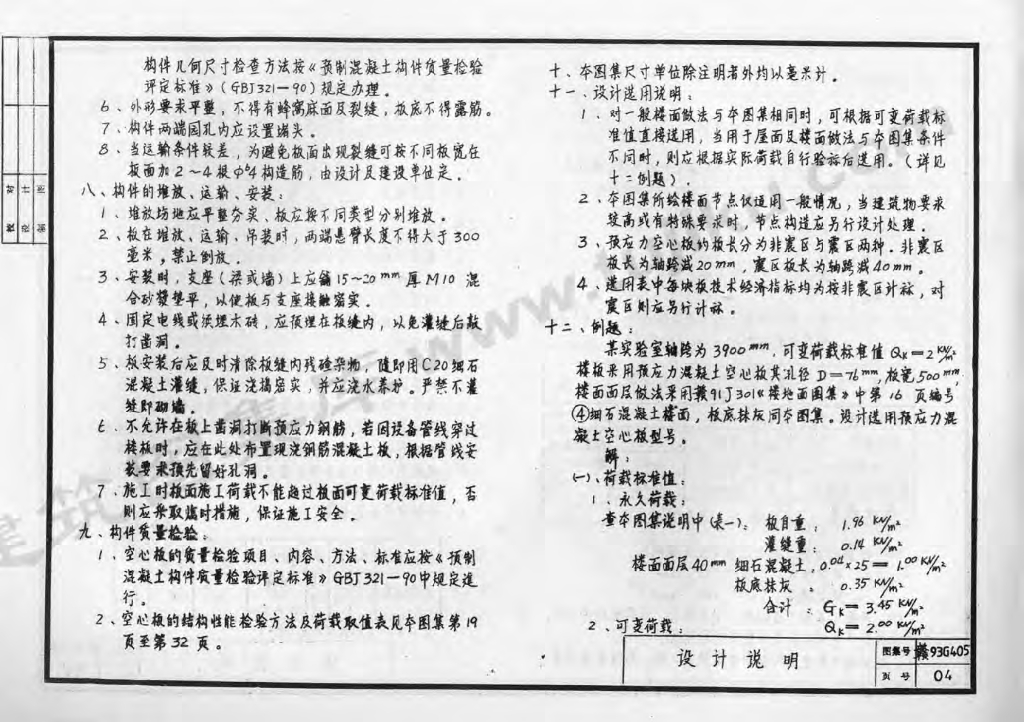 构件几何尺寸检查方法按《预制混凝土构件质量检验
评定标准》（GBJ321—90）规定办理。
6、外形要求平整，不得有蜂窝麻面及裂缝，板底不得露筋。
7、构件两端圆孔内应设置堵头。
8、当运输条件较差，为避免板面出现裂缝可按不同板宽在
板面加2～4根φ4构造筋，由设计及建设单位定。
八、构件的堆放、运输、安装：
1、堆放场地应平整夯实、板应按不同类型分别堆放。
2、板在堆放、运输、吊装时，两端悬臂长度不得大于300
毫米，禁止倒放．
3、安装时，支座（梁或墙）上应铺15～20mm厚M10混
合砂浆垫平，以使板与支座接触密实．
4、固定电线或预埋木砖，应预埋在板缝内，以免灌缝后敲
打凿洞．
5、板安装后应及时清除板缝内残碴杂物，随即用C20细石
混凝土灌缝，保证浇捣密实，并应浇水养护。严禁不灌
缝即砌墙．
6、不允许在板上凿洞打断预应力钢筋，若因设备管线穿过
楼板时，应在此处布置现浇钢筋混凝土板，根据管线安
装要求预先留好孔洞．
7、施工时板面施工荷载不能超过板面可变荷载标准值，否
则应采取临时措施，保证施工安全．
九、构件质量检验：
1、空心板的质量检验项目、内容、方法、标准应按《预制
混凝土构件质量检验评定标准》GBJ321—90中规定进
行。
2、空心板的结构性能检验方法及荷载取值表见本图集第19
页至第32页。
十、本图集尺寸单位除注明者外均以毫米计．
十一、设计选用说明：
1、对一般楼面做法与本图集相同时，可根据可变荷载标
准值直接选用，当用于屋面及楼面做法与本图集条件
不同时，则应根据实际荷载自行验标后选用。（详见
十二例题）．
2、本图集所绘楼面节点仅适用一般情况，当建筑物要求
较高或有特殊要求时，节点构造应另行设计处理．
3、预应力空心板的板长分为非震区与震区两种．非震区
板长为轴跨减20mm，震区板长为轴跨减40mm。
4、选用表中每块板技术经济指标均为按非震区计标，对
震区则应另行计标．
十二、例题：
某实验室轴跨为3900mm，可变荷载标准值QK=2KN/m²
楼板采用预应力混凝土空心板其孔径D=76mm，板宽500mm，
楼面面层做法采用赣91J301《楼地面图集》中第16页编号
④细石混凝土楼面，板底抹灰同本图集。设计选用预应力混
凝土空心板型号。
解：
㈠、荷载标准值：
1、永久荷载：
查本图集说明中（表一）：板自重： 1.96 KN/m²
灌缝重： 0.14 KN/m²
楼面面层40mm细石混凝土，0.04×25=1.00 KN/m²
板底抹灰： 0.35 KN/m²
合计：GK=3.45 KN/m²
2、可变荷载： QK=2.00 KN/m²
设计说明
图集号 赣93G405
页号 04